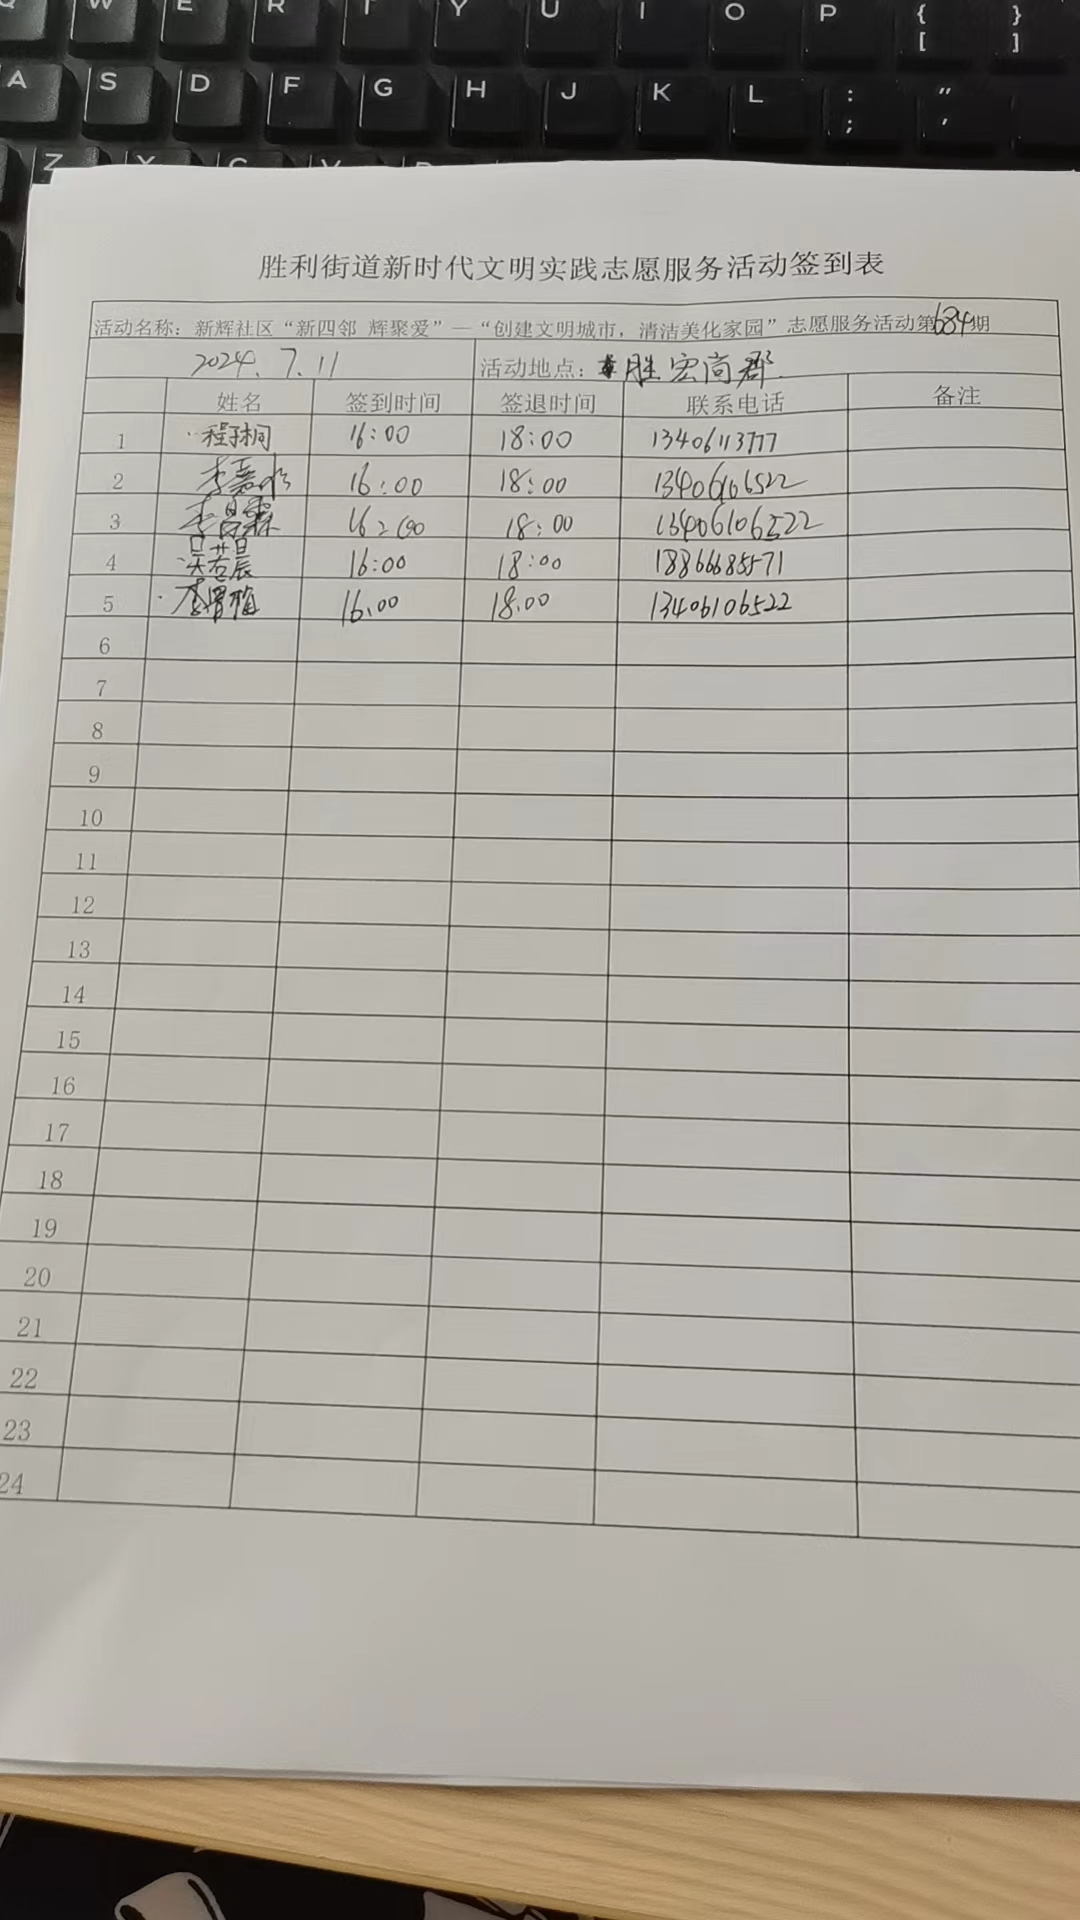 Q W E R T Y U I O P { [ } ]
A S D F G H J K L : ; " '
Z X C V B
胜利街道新时代文明实践志愿服务活动签到表
活动名称：新辉社区“新四邻 辉聚爱”—“创建文明城市，清洁美化家园”志愿服务活动第684期
2024.7.11 活动地点：胜宏尚郡
姓名 签到时间 签退时间 联系电话 备注
1 程子桐 16:00 18:00 13406113777
2 李嘉 16:00 18:00 13406106522
3 李昌霖 16:00 18:00 13406106522
4 吴若晨 16:00 18:00 18866685571
5 李 16.00 18.00 13406106522
6
7
8
9
10
11
12
13
14
15
16
17
18
19
20
21
22
23
24